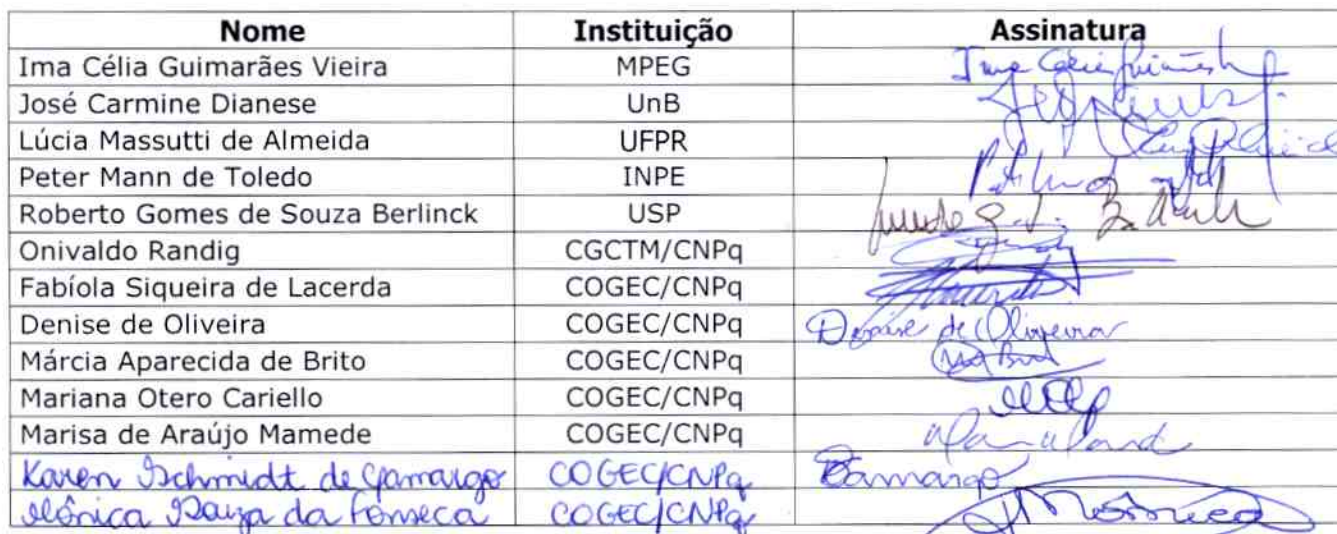 Nome Instituição Assinatura
Ima Célia Guimarães Vieira MPEG Ima Célia Guimarães
José Carmine Dianese UnB
Lúcia Massutti de Almeida UFPR
Peter Mann de Toledo INPE
Roberto Gomes de Souza Berlinck USP
Onivaldo Randig CGCTM/CNPq
Fabíola Siqueira de Lacerda COGEC/CNPq
Denise de Oliveira COGEC/CNPq Denise de Oliveira
Márcia Aparecida de Brito COGEC/CNPq
Mariana Otero Cariello COGEC/CNPq
Marisa de Araújo Mamede COGEC/CNPq
Karen Schmidt de Camargo COGEC/CNPq Camargo
Mônica Souza da Fonseca COGEC/CNPq Mônica